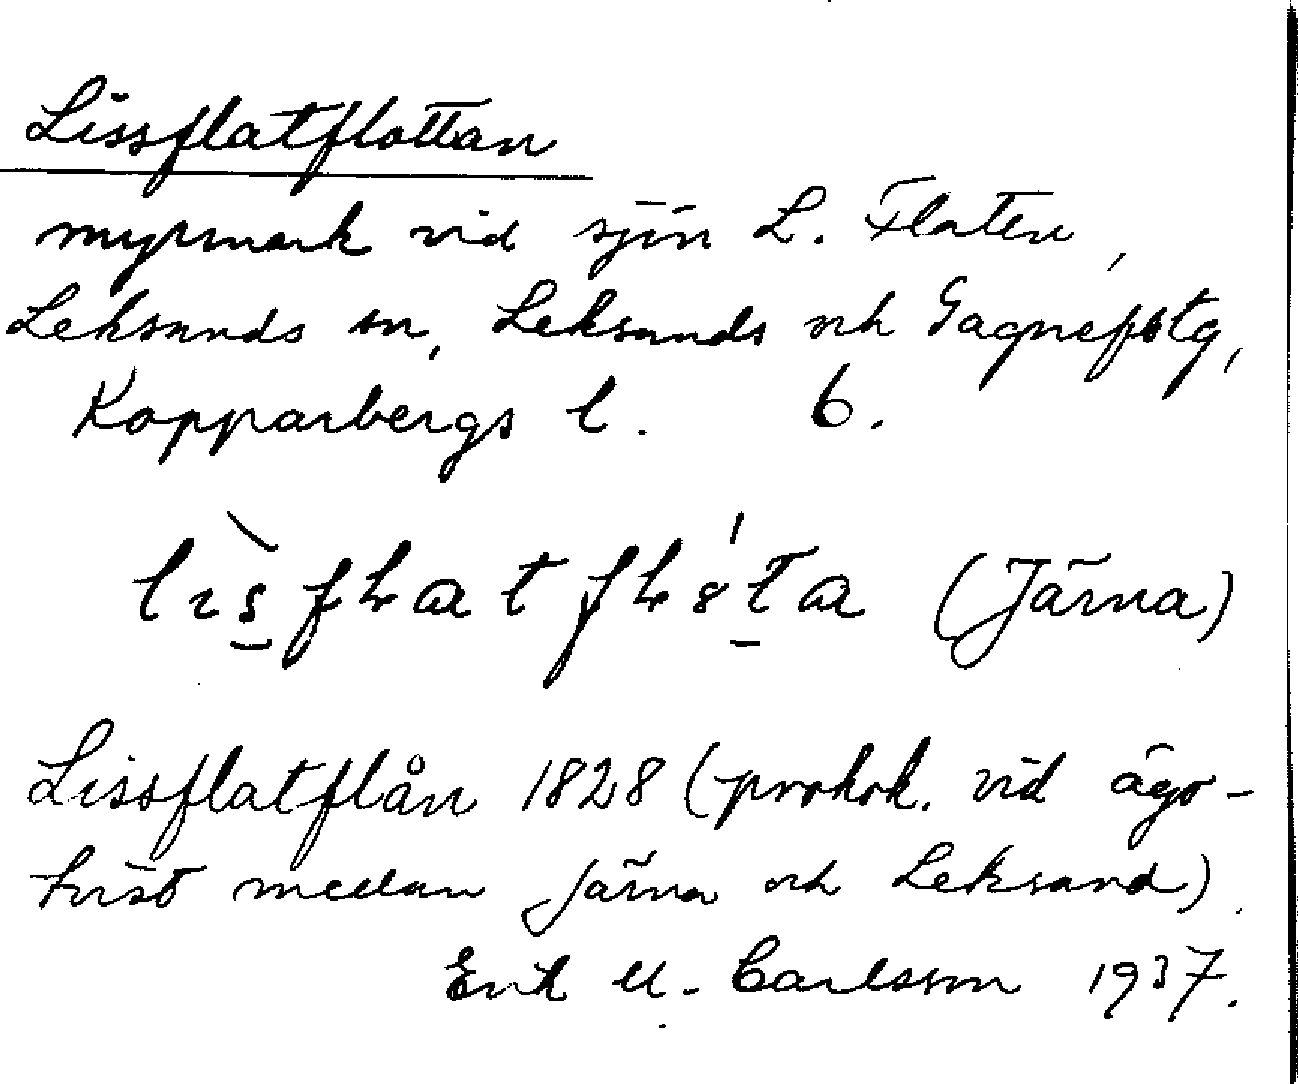 Lissflatflottan
myrmark vid sjön L. Flaten,
Leksands sn, Leksands och Gagnefs tg,
Kopparbergs l. 6.
(Järna)
Lissflatflån 1828 (protok. vid ägo-
tvist mellan Järna och Leksand).
Erik U. Carlsson 1937.